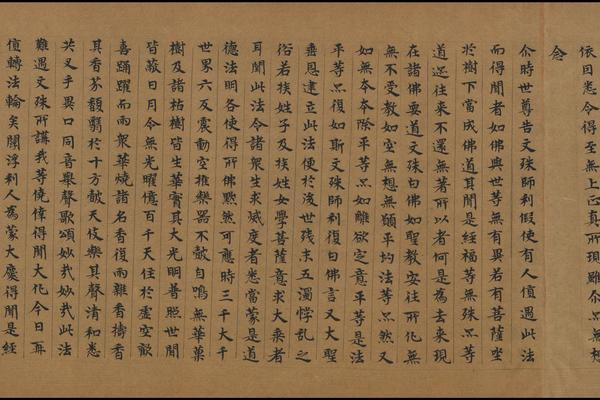 依因悉令得至無上正真所現雖尒亦無想
念
尒時世尊告文殊師利假使有人值遇此法
而得聞者如佛興世等無有異若有菩薩坐
於樹下當成佛道耳聞是經福等無殊亦等
道迩往來不還無著所以者何是為去來現
在諸佛要道文殊白佛如聖教安住所化無
無不受教如空無想無願平均法等亦然又
如無本本除平等亦如離欲定意平等是法
平等亦復如斯文殊師利復白佛言又大聖
垂恩建立此法使於後世殘末五濁悖乱之
俗若族姓子及族姓女學菩薩意求大乘者
耳聞此法令諸衆生求滅度者悉當蒙是道
德法明各使得所佛默然可應時三千大千
世界六反震動空推樂器不皷自鳴無華菓
樹及諸枯樹皆生華實其大光明普照世間
皆蔽日月令無光曜億百千天住於虛空歡
喜踊躍而雨衆華燒諸名香復雨雜香擣香
其香芬馥翳於十方皷天伎樂其聲清和悉
共叉手異口同音舉聲歌頌妙哉妙哉此法
難遇文殊所講我等僥倖得聞大化今日再
值轉法輪矣閻浮利人為蒙大慶得聞是經